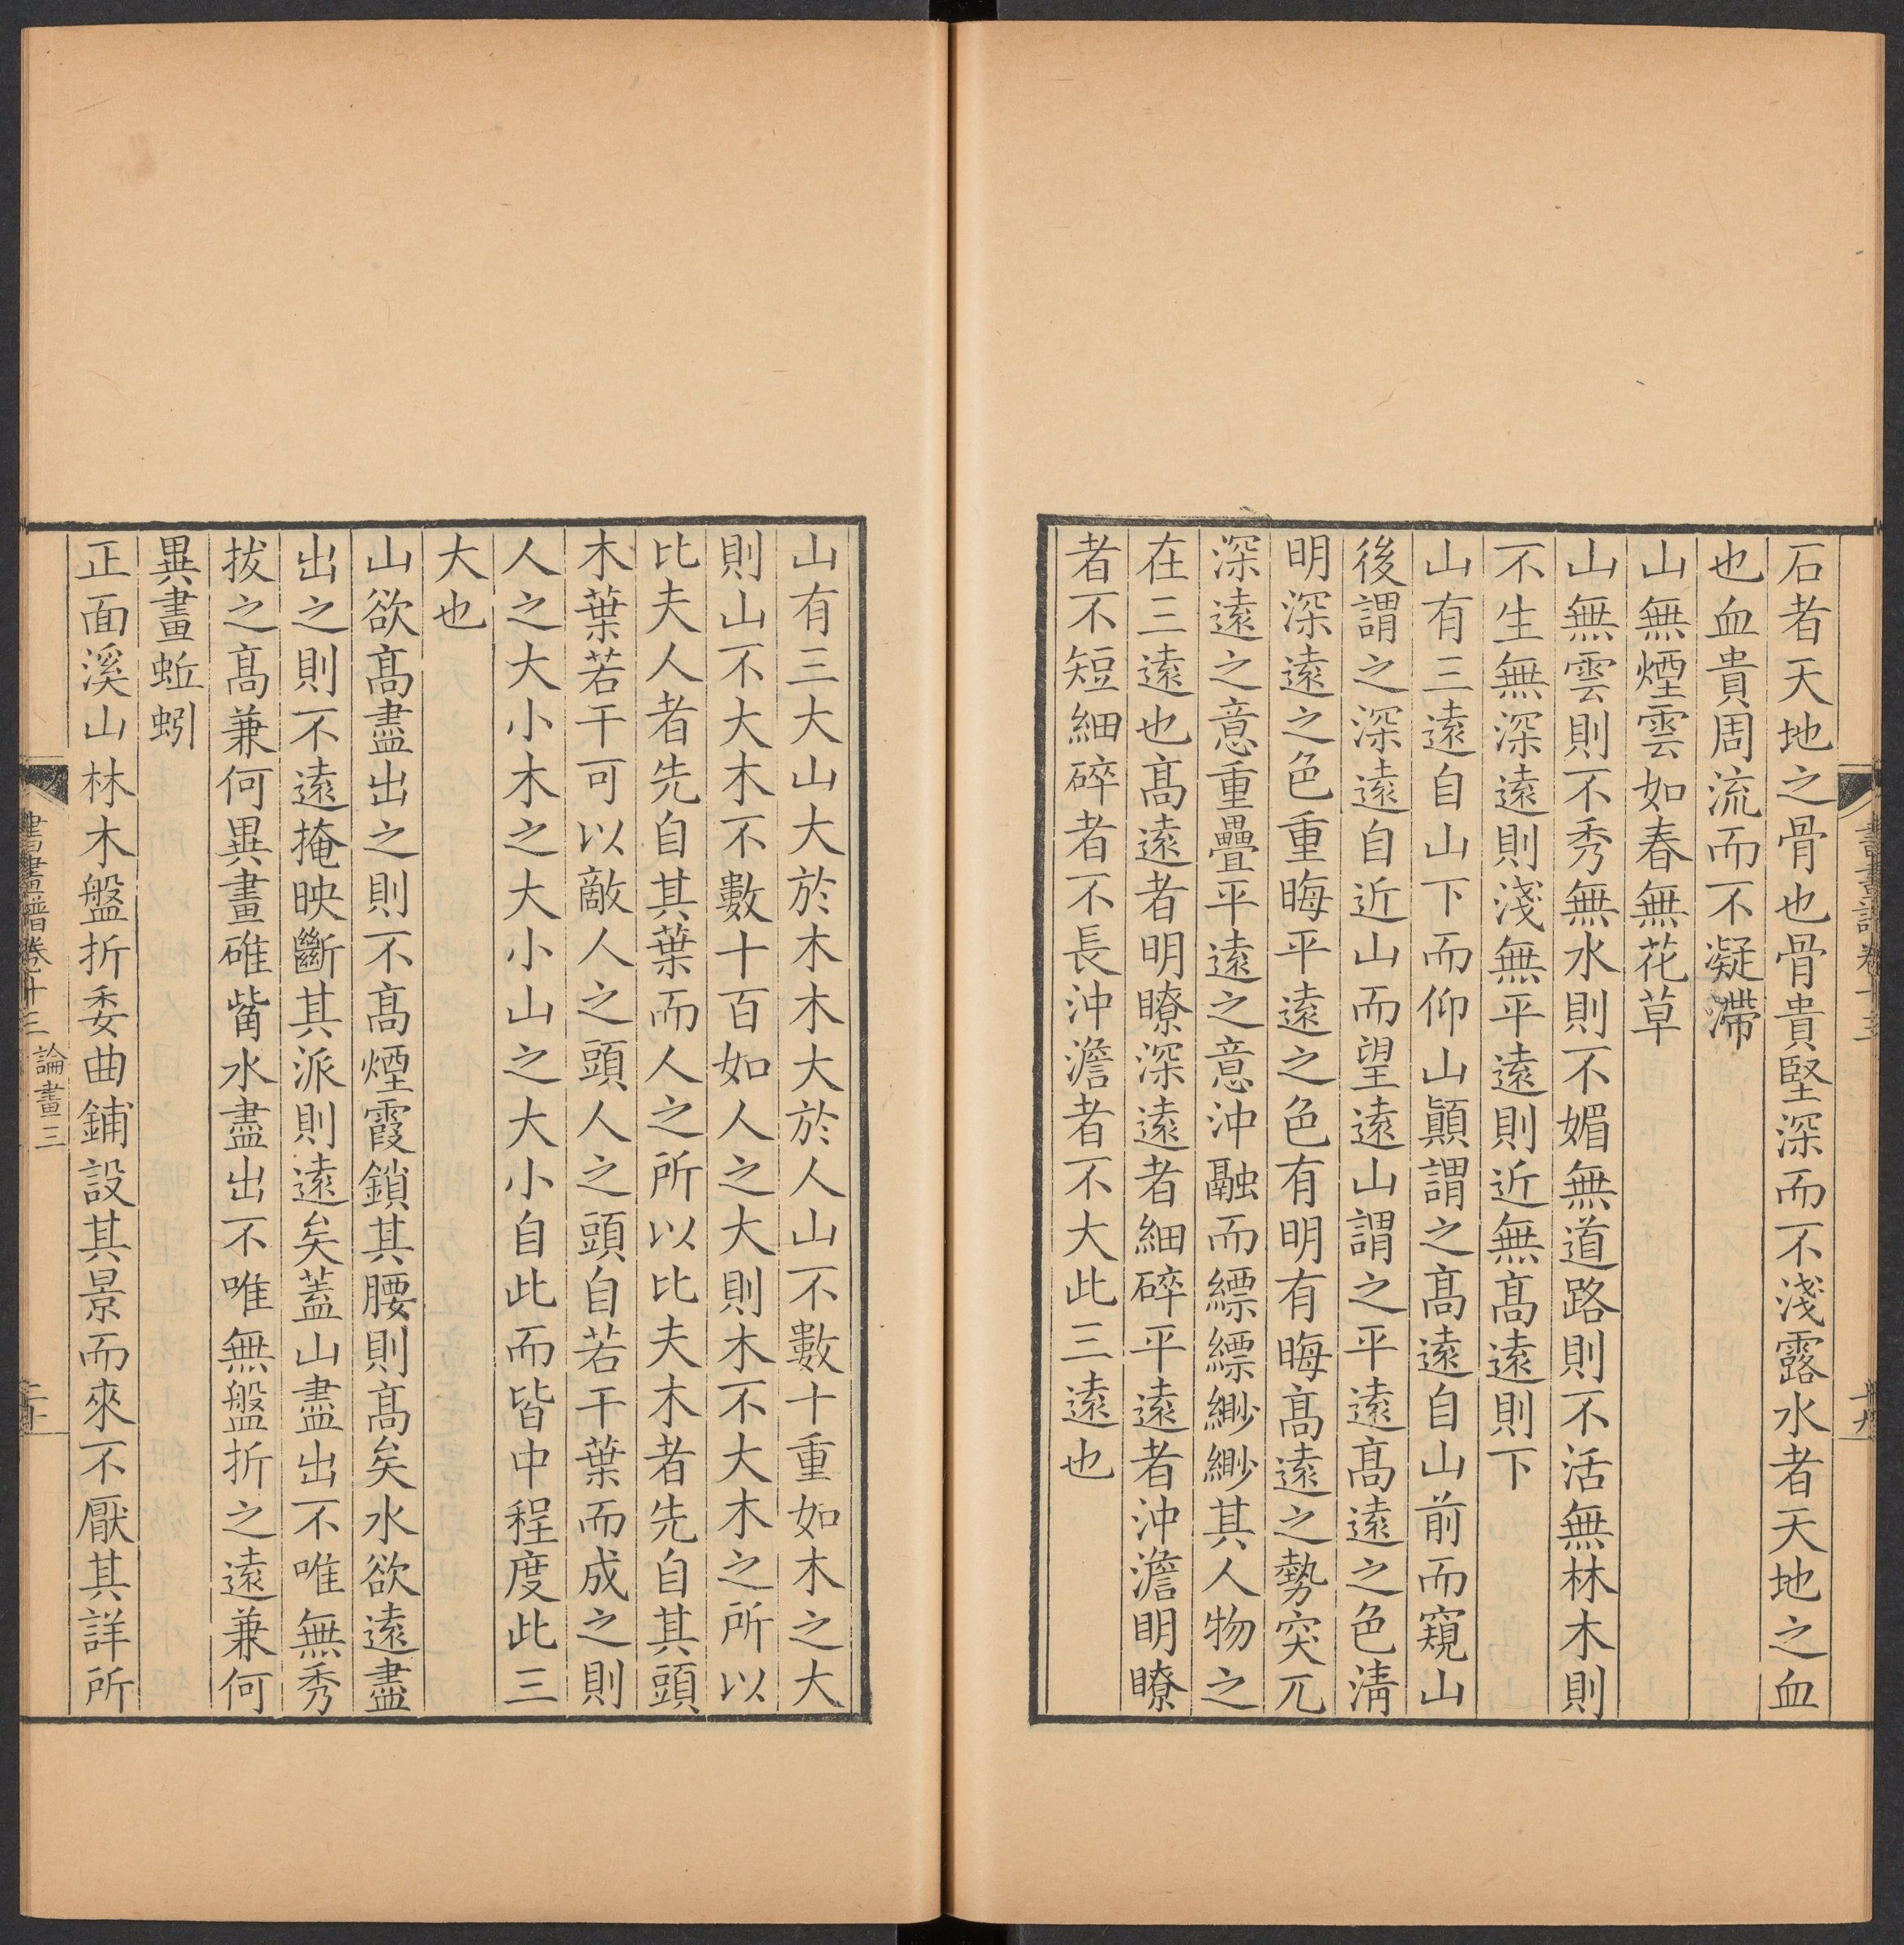 石者天地之骨也骨貴堅深而不淺露水者天地之血
也血貴周流而不凝滯
山無煙雲如春無花草
山無雲則不秀無水則不媚無道路則不活無林木則
不生無深遠則淺無平遠則近無髙遠則下
山有三遠自山下而仰山顛謂之髙遠自山前而窺山
後謂之深遠自近山而望遠山謂之平遠髙遠之色淸
明深遠之色重晦平遠之色有明有晦髙遠之勢突兀
深遠之意重疊平遠之意沖融而縹縹緲緲其人物之
在三遠也髙遠者明瞭深遠者細碎平遠者沖澹明瞭
者不短細碎者不長沖澹者不大此三遠也
山有三大山大於木木大於人山不數十重如木之大
則山不大木不數十百如人之大則木不大木之所以
比夫人者先自其葉而人之所以比夫木者先自其頭
木葉若干可以敵人之頭人之頭自若干葉而成之則
人之大小木之大小山之大小自此而皆中程度此三
大也
山欲髙盡出之則不髙煙霞鎖其腰則髙矣水欲遠盡
出之則不遠掩映斷其派則遠矣蓋山盡出不唯無秀
拔之髙兼何異畫碓觜水盡出不唯無盤折之遠兼何
異畫蚯蚓
正面溪山林木盤折委曲鋪設其景而來不厭其詳所
書畫譜卷十三 論畫三